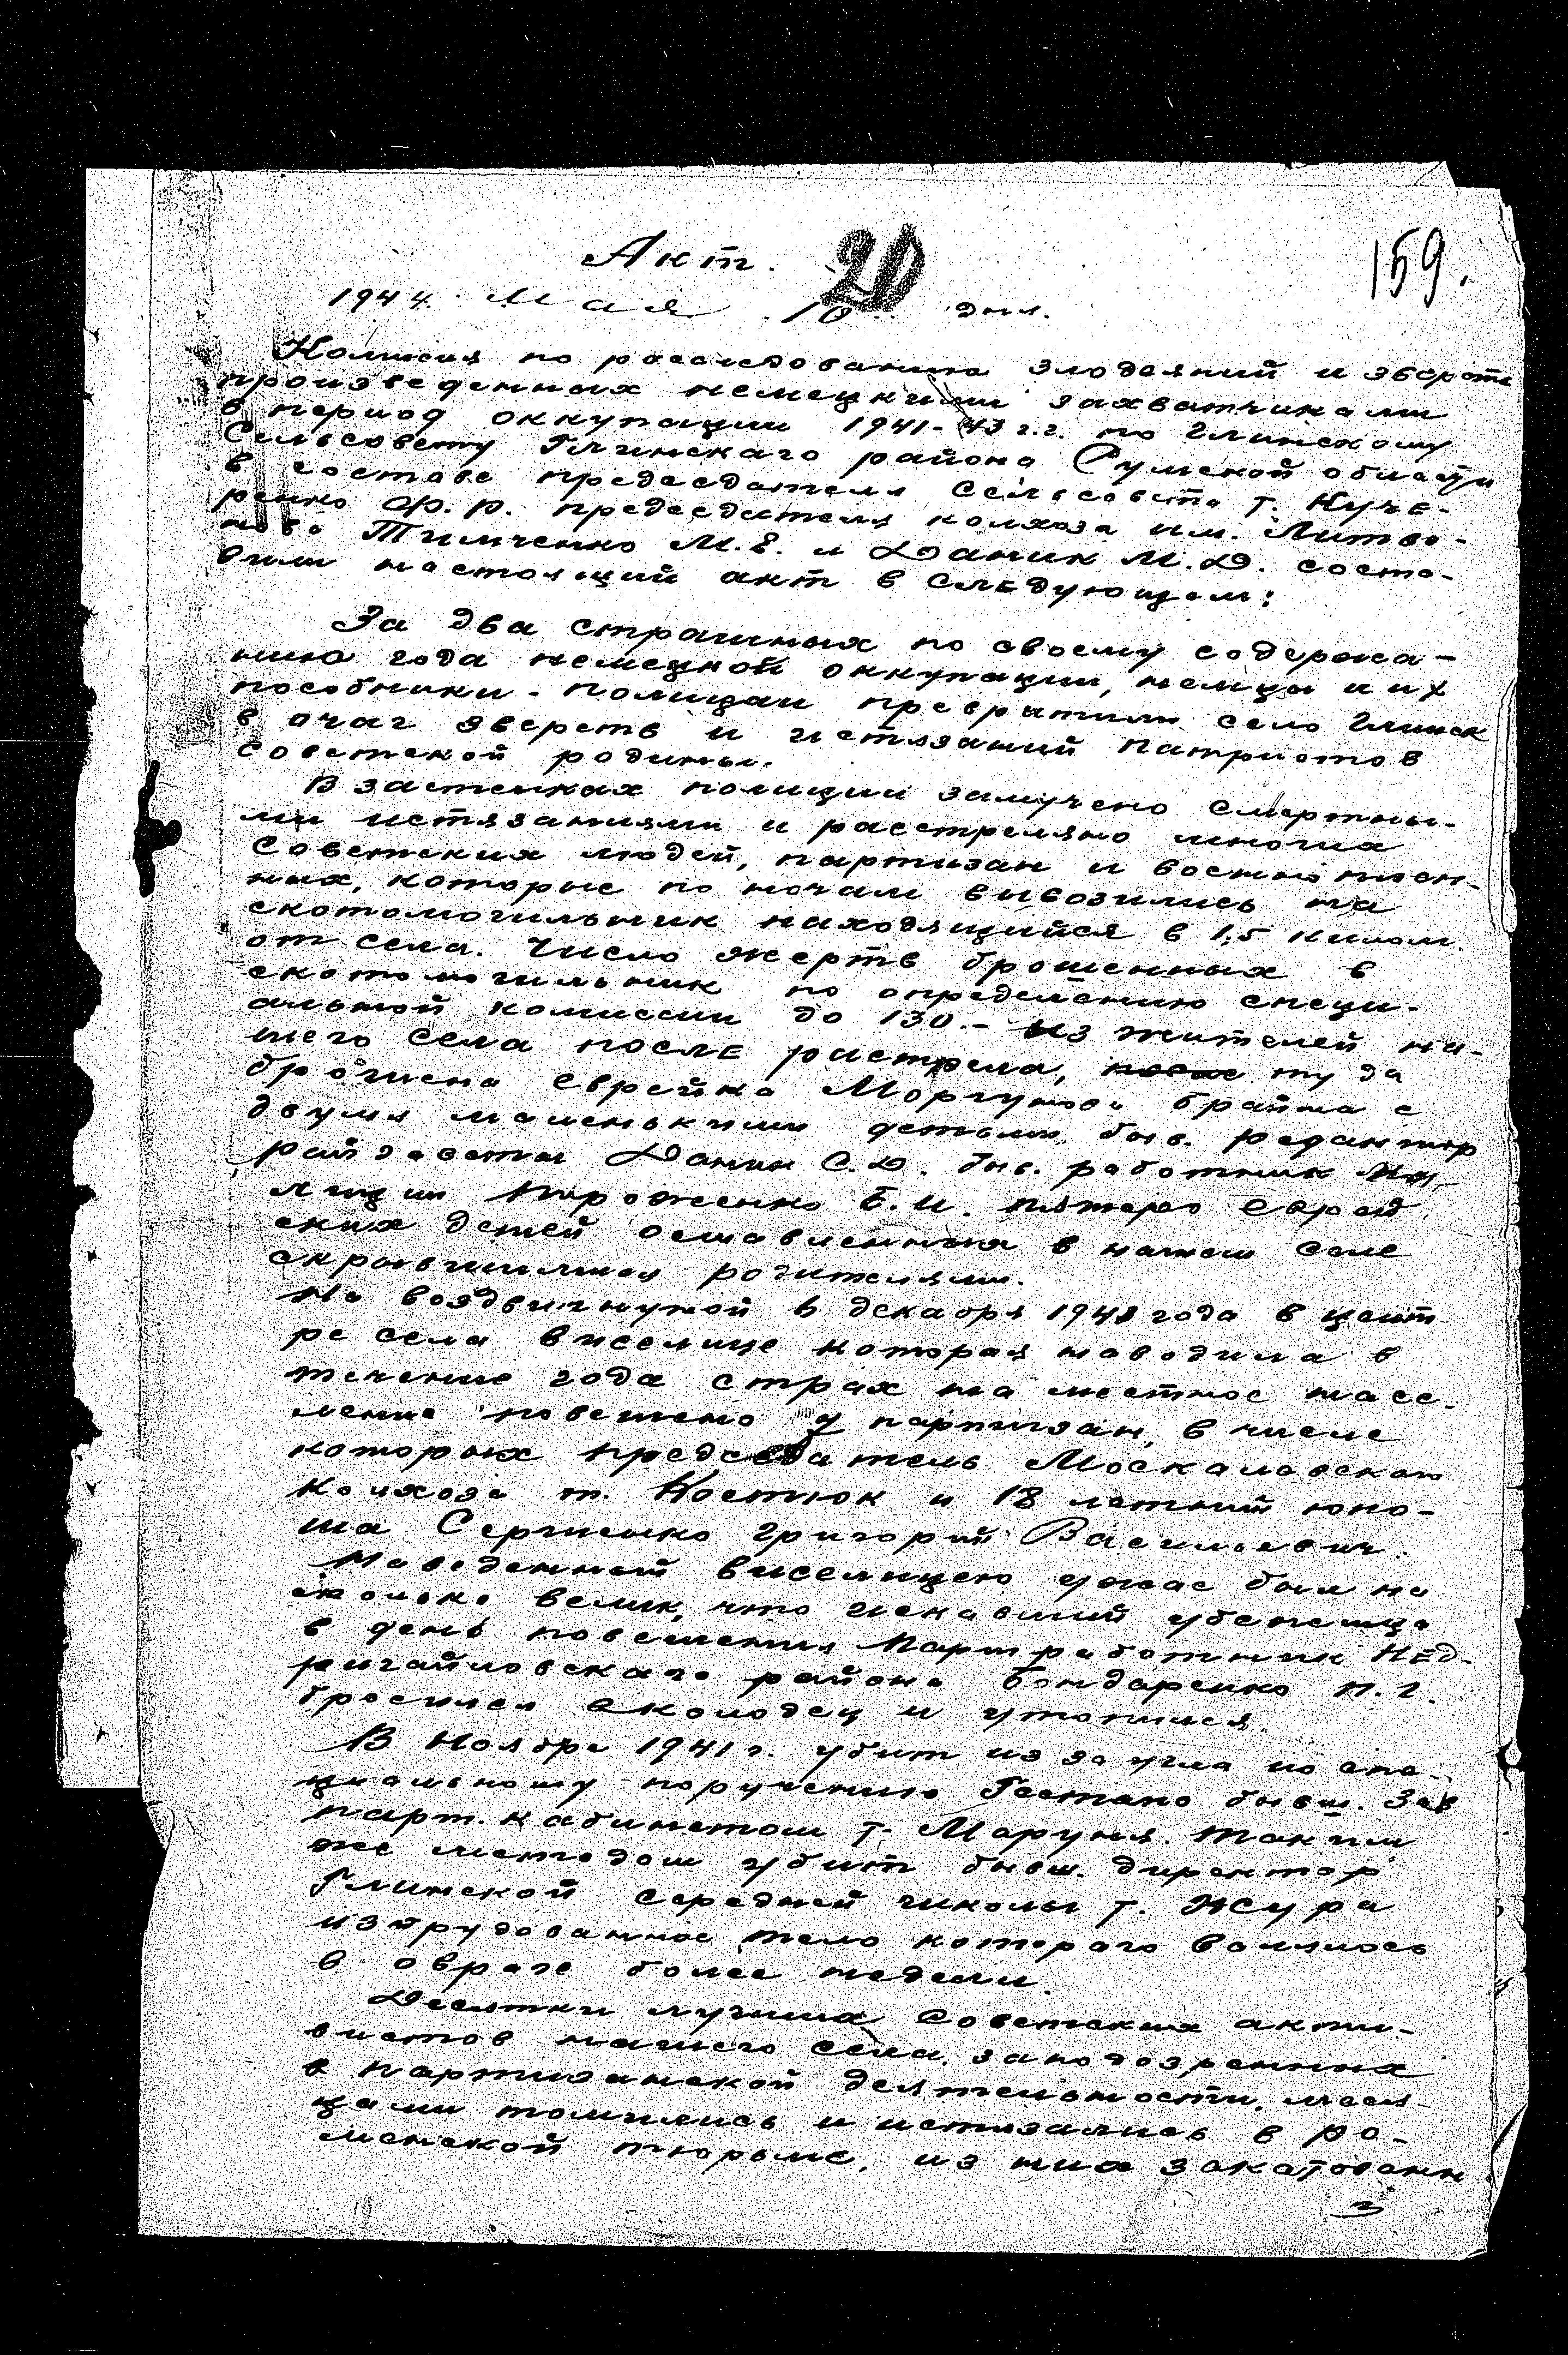 Акт.
20
159.
1944. Мая 10 дня.
Комиссия по расследованию злодеяний и зверств
произведенных немецкими захватчиками
в период оккупации 1941-43 г.г. по Глинскому
Сельсовету Глинского района Сумской области
в составе председателя сельсовета т. Куче-
ренко Ф.Р. председателя колхоза им. Литви-
нова Тимченко М.Е. и Даник М.Д. соста-
вили настоящий акт в следующем:
За два страшных по своему содержа-
нию года немецкой оккупации, немцы и их
пособники - полицаи превратили село Глинск
в очаг зверств и истязаний патриотов
советской родины.
В застенках полиции замучено смертны-
ми истязаниями и расстреляно многих
Советских людей, партизан и военноплен-
ных, которые по ночам вывозились на
скотомогильник находящийся в 1,5 килом.
от села. Число жертв брошенных в
скотомогильник по определению специ-
альной комиссии до 130.- Из жителей на-
шего села после растрела, туда
брошена еврейка Моргунова Брайна с
двумя маленькими детьми, быв. редактор
райгазеты Даник С.Д. быв. работник
лиции Б.И. пятеро еврей
ских детей оставленных в нашем селе
скрывшимися родителями.
На воздвигнутой в декабре 1941 года в цент
ре села виселице которая наводила в
течение года страх на местное насе-
ление повешено 9 партизан, в числе
которых председатель Москаловского
Колхоза т. Костюк и 18 летний юно-
ша Сергиенко Григорий Васильевич.
Наведенный виселицею ужас был на
сколько велик, что искавший убежища
в день повешения Партработник Нед-
ригайловского района Бондаренко П.Г.
бросился в колодец и утопился.
В Ноябре 1941 г. убит из за угла по спе-
циальному поручению Гестапо бывш. Зав
парт. кабинетом т. Маруня. Таким
же методом убит бывш. директор
Глинской средней школы т. Жура
тело которого валялось
в овраге более недели.
Десятки лучших Советских акти-
вистов нашего села, заподозренных
в партизанской деятельности, меся-
цами томились и истязались в Ро-
менской тюрьме, из них закатованн